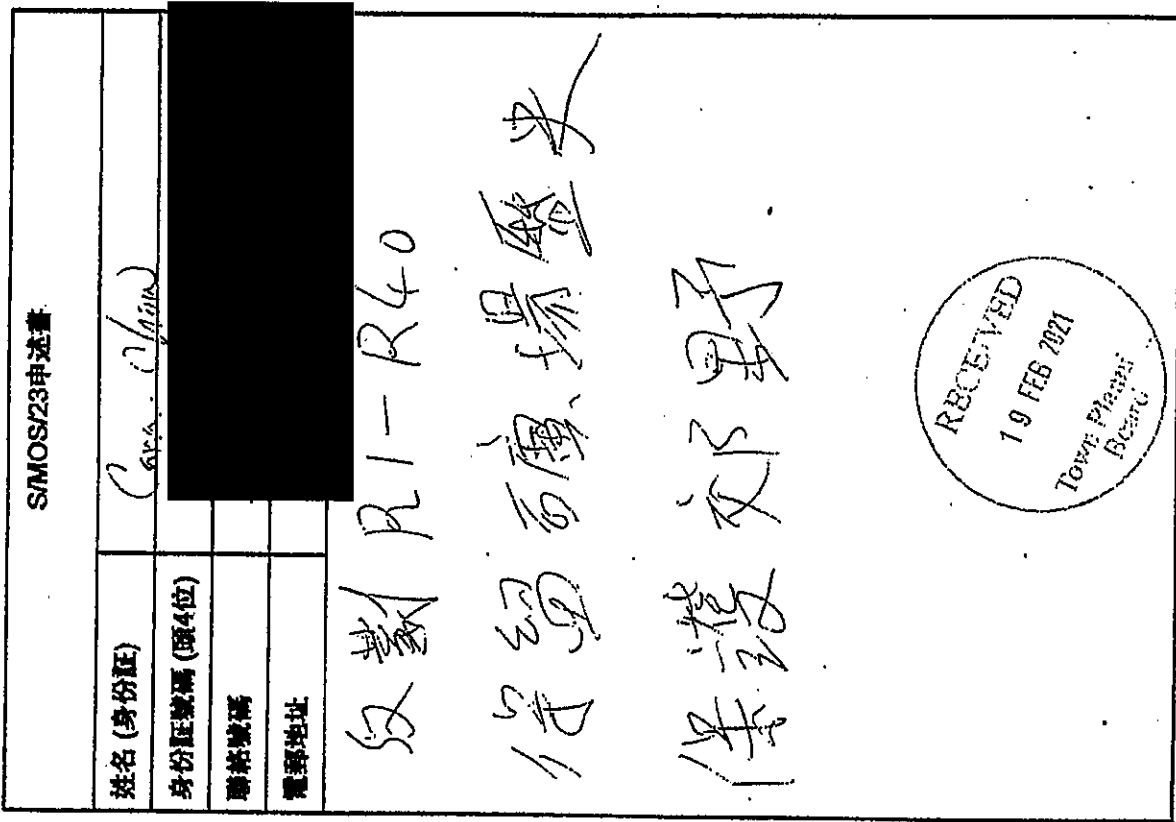 S/MOS/23申述書
姓名 (身份証)
身份証號碼 (頭4位)
聯絡號碼
電郵地址
反對 R1-R40
保護郊野
RECEIVED
19 FEB 2021
Town Planning
Board